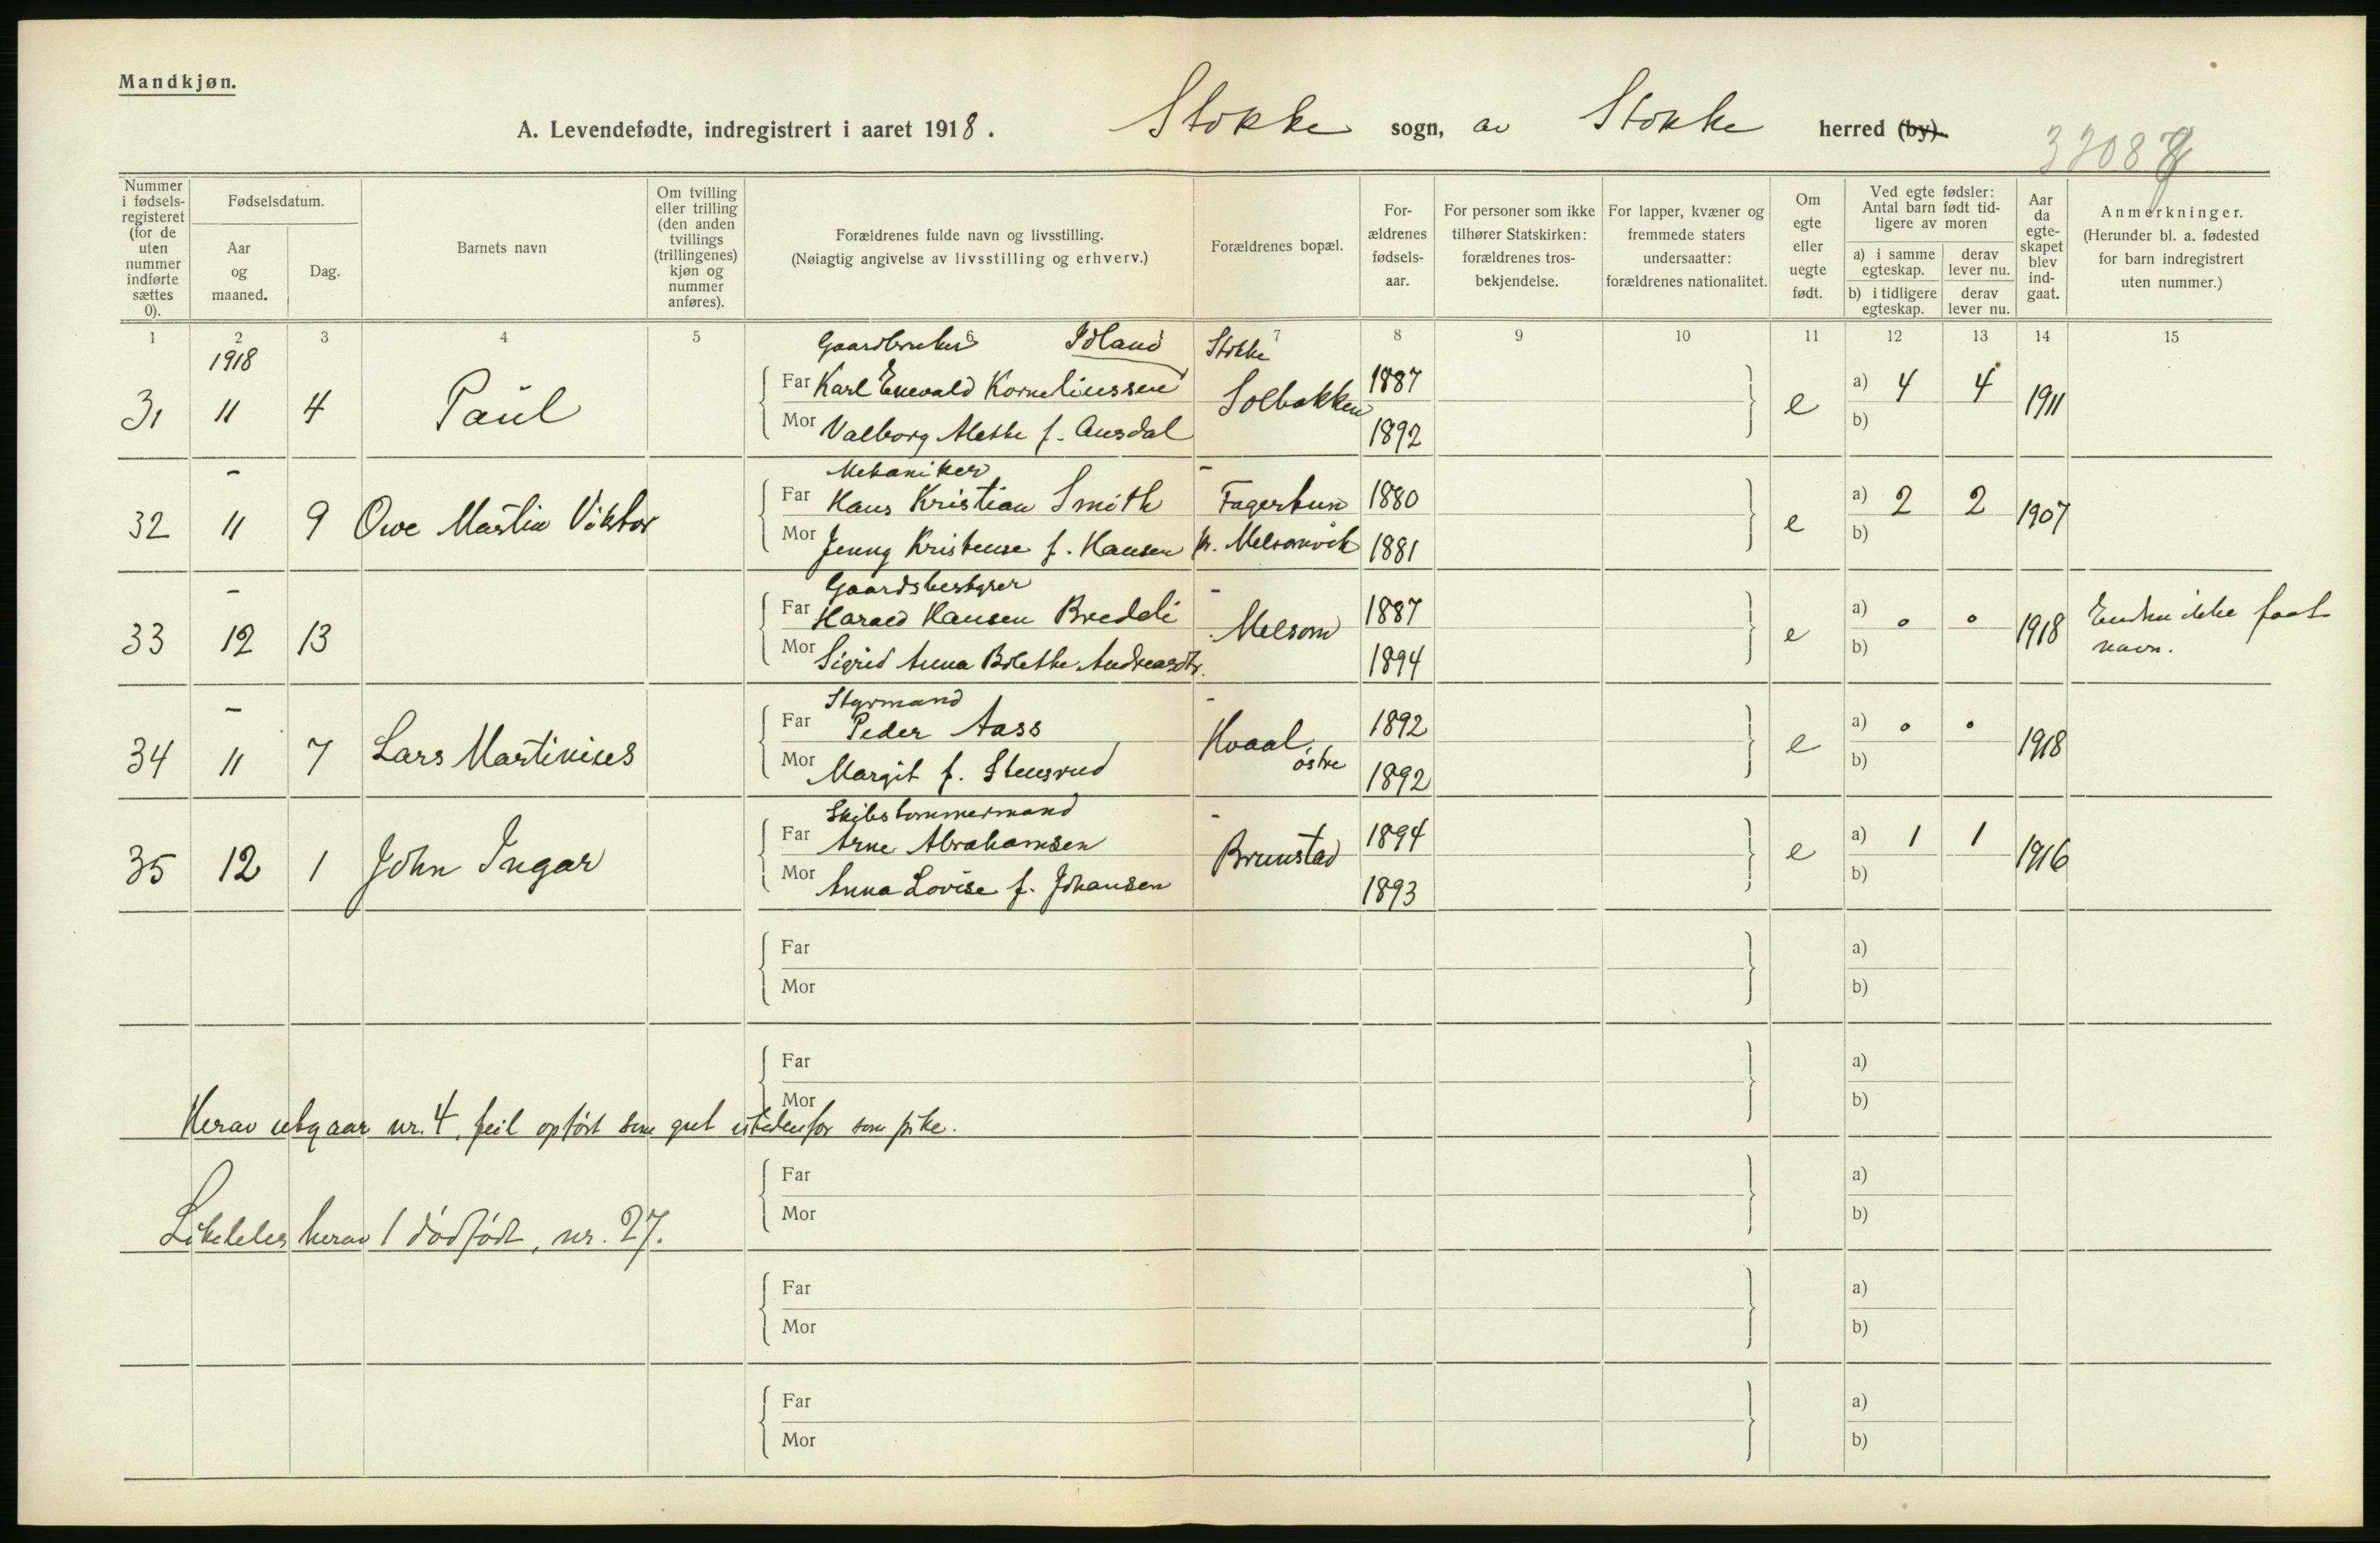 Mandkjøn.
A. Levendefødte, indregistrert i aaret 1918. Stokke sogn, av Stokke herred (by).
Nummer i fødsels-registeret (for de uten nummer indførte sættes 0).
Fødselsdatum.
Aar og maaned.
Dag.
Barnets navn
Om tvilling eller trilling (den anden tvillings (trillingenes) kjøn og nummer anføres).
Forældrenes fulde navn og livsstilling.
(Nøiagtig angivelse av livsstilling og erhverv.)
Forældrenes bopæl.
For-ældrenes fødsels-aar.
For personer som ikke tilhører Statskirken: forældrenes tros-bekjendelse.
For lapper, kvæner og fremmede staters undersaatter: forældrenes nationalitet.
Om egte eller uegte født.
Ved egte fødsler: Antal barn født tid-ligere av moren
a) i samme egteskap. derav lever nu.
b) i tidligere egteskap. derav lever nu.
Aar da egte-skapet blev ind-gaat.
Anmerkninger.
(Herunder bl. a. fødested for barn indregistrert uten nummer.)
1 2 3 4 5 6 7 8 9 10 11 12 13 14 15
1918 Gaardbruker Idland Stokke
31 11 4 Paul Far Karl Enevald Korneliussen Solbakken 1887 e a) 4 4 1911
Mor Valborg Alette f. Ausdal 1892 b)
- Mekaniker -
32 11 9 Owe Martin Viktor Far Hans Kristian Smith Fagertun 1880 e a) 2 2 1907
Mor Jenny Kristense f. Hansen pr. Melsomvik 1881 b)
- Gaardsbestyrer -
33 12 13 Far Harald Hansen Breddi Melsom 1887 e a) 0 0 1918 Endnu ikke faat
Mor Sigrid Anna Bolette Andreasdtr. 1894 b) navn.
- Styrmand -
34 11 7 Lars Martinius Far Peder Aass Hvaal østre 1892 e a) 0 0 1918
Mor Margit f. Stensrud 1892 b)
Skibstømmermand -
35 12 1 John Ingar Far Arne Abrahamsen Brunstad 1894 e a) 1 1 1916
Mor Anna Lovise f. Johansen 1893 b)
Far a)
Mor b)
Far a)
Mor b)
Herav utgaar nr. 4, feil opført som gut istedenfor som pike.
Far a)
Mor b)
Likeledes herav 1 dødfødt, nr. 27.
Far a)
Mor b)
Far a)
Mor b)